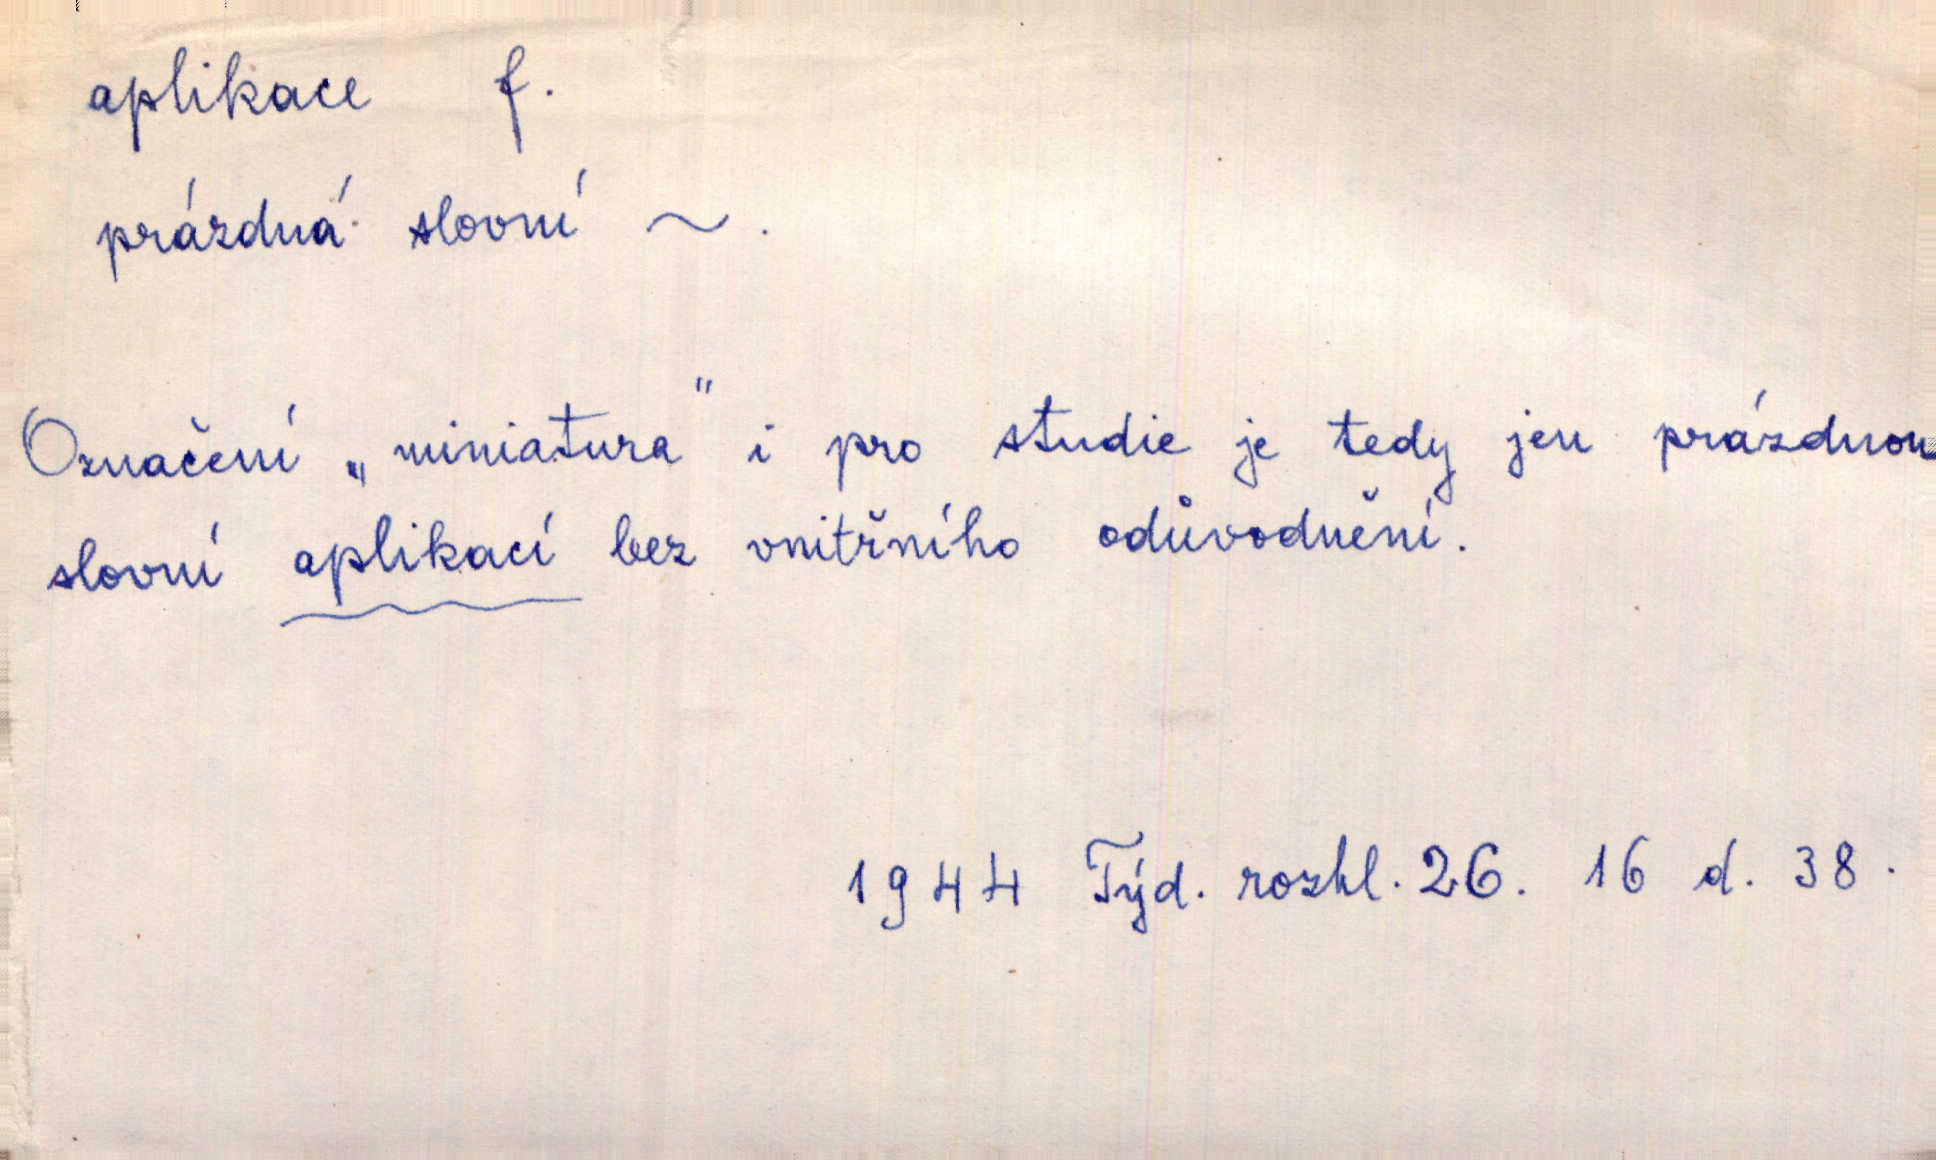 aplikace f.
prázdná slovní ~.
Označení „miniatura" i pro studie je tedy jen prázdnou
slovní aplikací bez vnitřního odůvodnění.
1944 Týd. rozhl. 26. 16 d. 38.